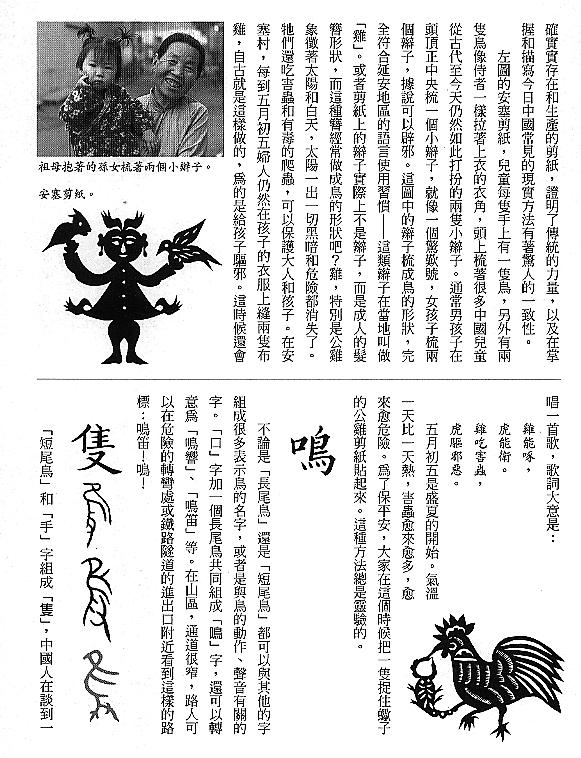 確實實存在和生產的剪紙，證明了傳統的力量，以及在掌
握和描寫今日中國常見的現實方法有著驚人的一致性。
左圖的安塞剪紙，兒童每隻手上有一隻鳥，另外有兩
隻鳥像侍者一樣拉著上衣的衣角，頭上梳著很多中國兒童
從古代至今天仍然如此打扮的兩隻小辮子。通常男孩子在
頭頂正中央梳一個小辮子，就像一個驚歎號，女孩子梳兩
個辮子，據說可以辟邪。這圖中的辮子梳成鳥的形狀，完
全符合延安地區的語言使用習慣——這類辮子在當地叫做
「雞」。或者剪紙上的辮子實際上不是辮子，而是成人的髮
簪形狀，而這種簪經常做成鳥的形狀吧？雞，特別是公雞
象徵著太陽和白天，太陽一出一切黑暗和危險都消失了。
牠們還吃害蟲和有毒的爬蟲，可以保護大人和孩子。在安
塞村，每到五月初五婦人仍然在孩子的衣服上縫兩隻布
雞，自古就是這樣做的，為的是給孩子驅邪。這時候還會
祖母抱著的孫女梳著兩個小辮子。
安塞剪紙。
唱一首歌，歌詞大意是：
雞能啄，
虎能銜。
雞吃害蟲，
虎驅邪惡。
五月初五是盛夏的開始。氣溫
一天比一天熱，害蟲愈來愈多，愈
來愈危險。為了保平安，大家在這個時候把一隻捉住蠍子
的公雞剪紙貼起來。這種方法總是靈驗的。
鳴
不論是「長尾鳥」還是「短尾鳥」都可以與其他的字
組成很多表示鳥的名字，或者是與鳥的動作、聲音有關的
字。「口」字加一個長尾鳥共同組成「鳴」字，還可以轉
意為「鳴響」、「鳴笛」等。在山區，通道很窄，路人可
以在危險的轉彎處或鐵路隧道的進出口附近看到這樣的路
標：鳴笛！鳴！
隻
「短尾鳥」和「手」字組成「隻」，中國人在談到一